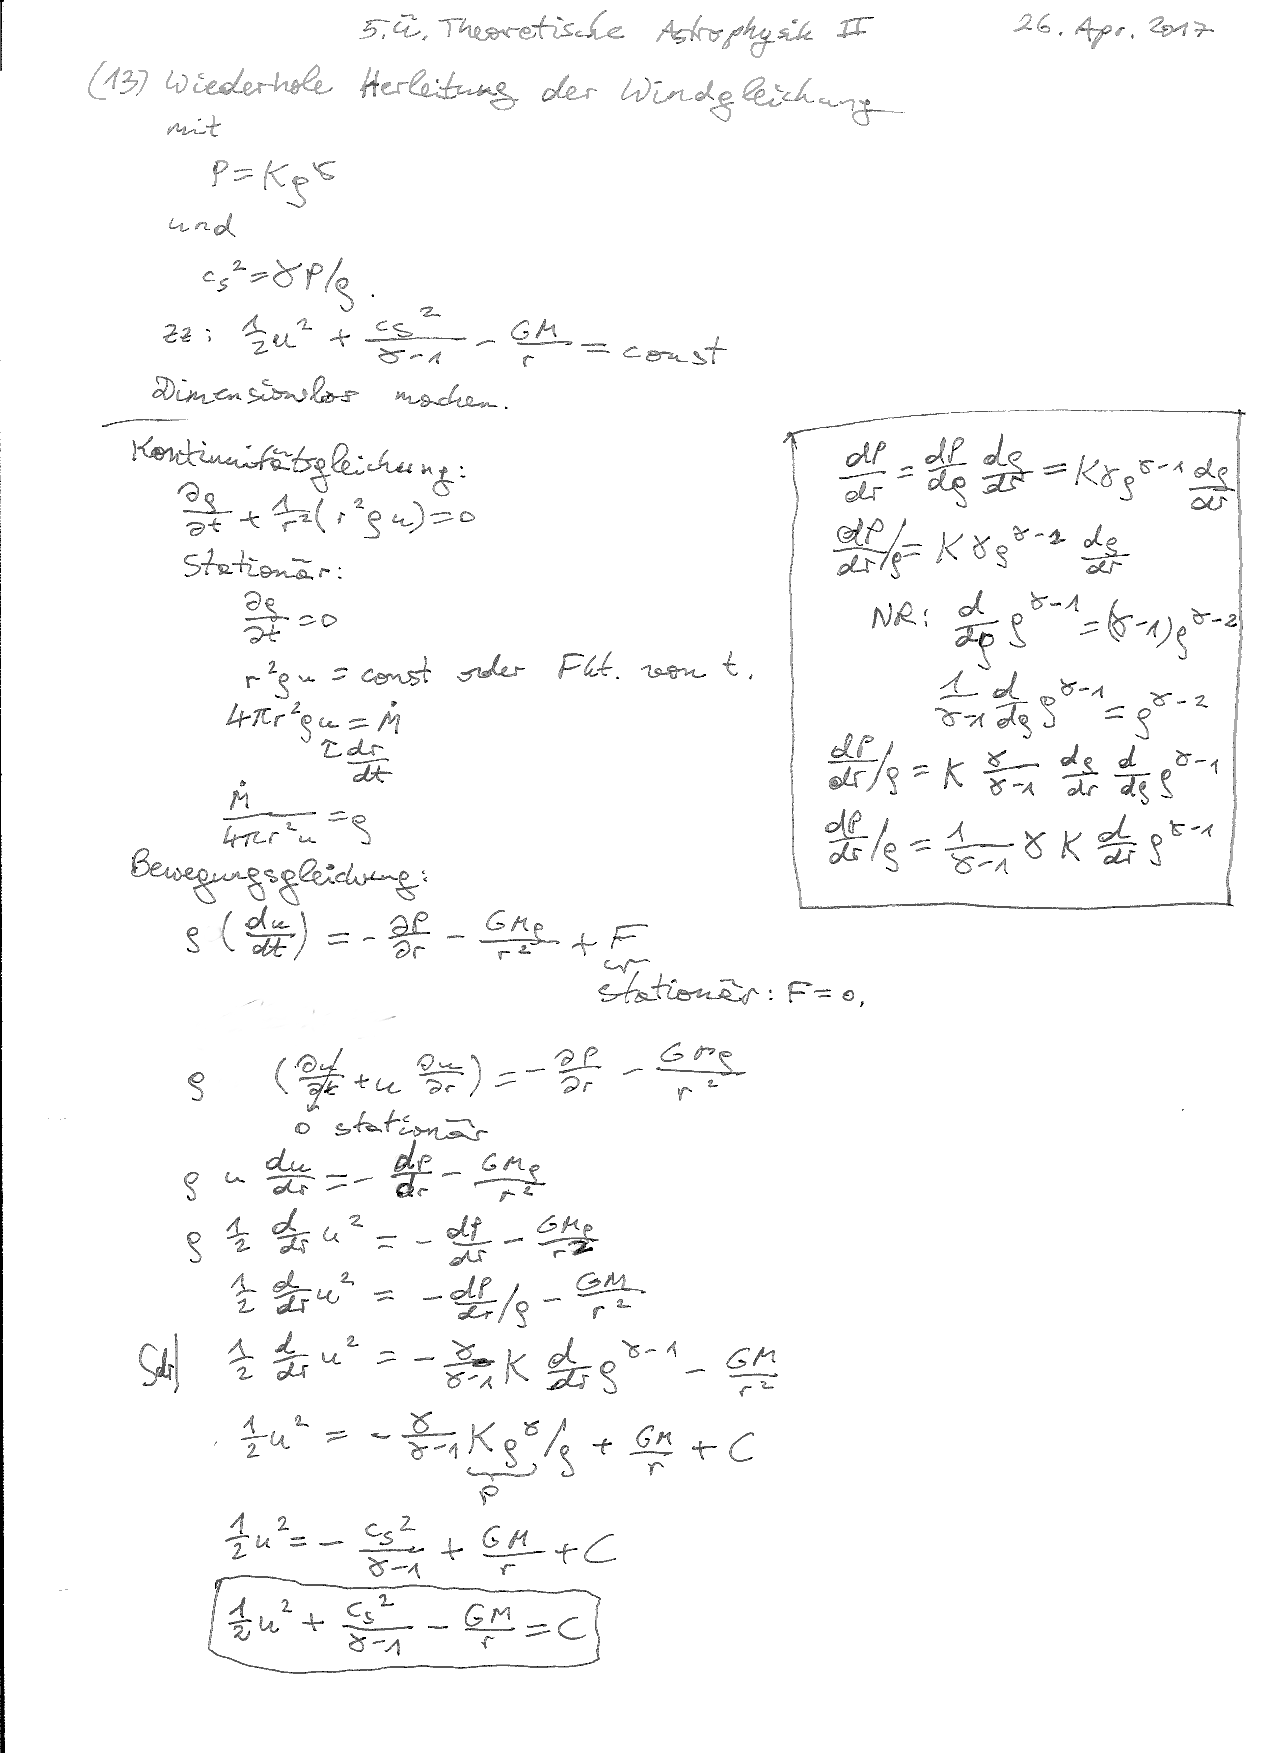 5. Ü. Theoretische Astrophysik II 26. Apr. 2017
(13) Wiederhole Herleitung der Windgleichung
mit
P = Kρ^γ
und
c_s^2 = γP/ρ.
zz: 1/2 u^2 + c_s^2/(γ-1) - GM/r = const
Dimensionslos machen.
Kontinuitätsgleichung:
∂ρ/∂t + 1/r^2 (r^2ρu) = 0
Stationär:
∂ρ/∂t = 0
r^2ρu = const oder Fkt. von t.
4πr^2ρu = Ṁ
↑ dr/dt
Ṁ/(4πr^2u) = ρ
Bewegungsgleichung:
ρ (du/dt) = - ∂P/∂r - GMρ/r^2 + F
stationär: F = 0.
ρ (∂u/∂t + u ∂u/∂r) = - ∂P/∂r - GMρ/r^2
0 stationär
ρ u du/dr = - dP/dr - GMρ/r^2
ρ 1/2 d/dr u^2 = - dP/dr - GMρ/r^2
1/2 d/dr u^2 = - dP/dr/ρ - GM/r^2
∫dr| 1/2 d/dr u^2 = - γ/(γ-1) K d/dr ρ^(γ-1) - GM/r^2
1/2 u^2 = - γ/(γ-1) Kρ^γ/ρ + GM/r + C
P
1/2 u^2 = - c_s^2/(γ-1) + GM/r + C
1/2 u^2 + c_s^2/(γ-1) - GM/r = C
dP/dr = dP/dρ dρ/dr = Kγρ^(γ-1) dρ/dr
dP/dr/ρ = Kγρ^(γ-2) dρ/dr
NR: d/dρ ρ^(γ-1) = (γ-1)ρ^(γ-2)
1/(γ-1) d/dρ ρ^(γ-1) = ρ^(γ-2)
dP/dr/ρ = K γ/(γ-1) dρ/dr d/dρ ρ^(γ-1)
dP/dr/ρ = 1/(γ-1) γ K d/dr ρ^(γ-1)